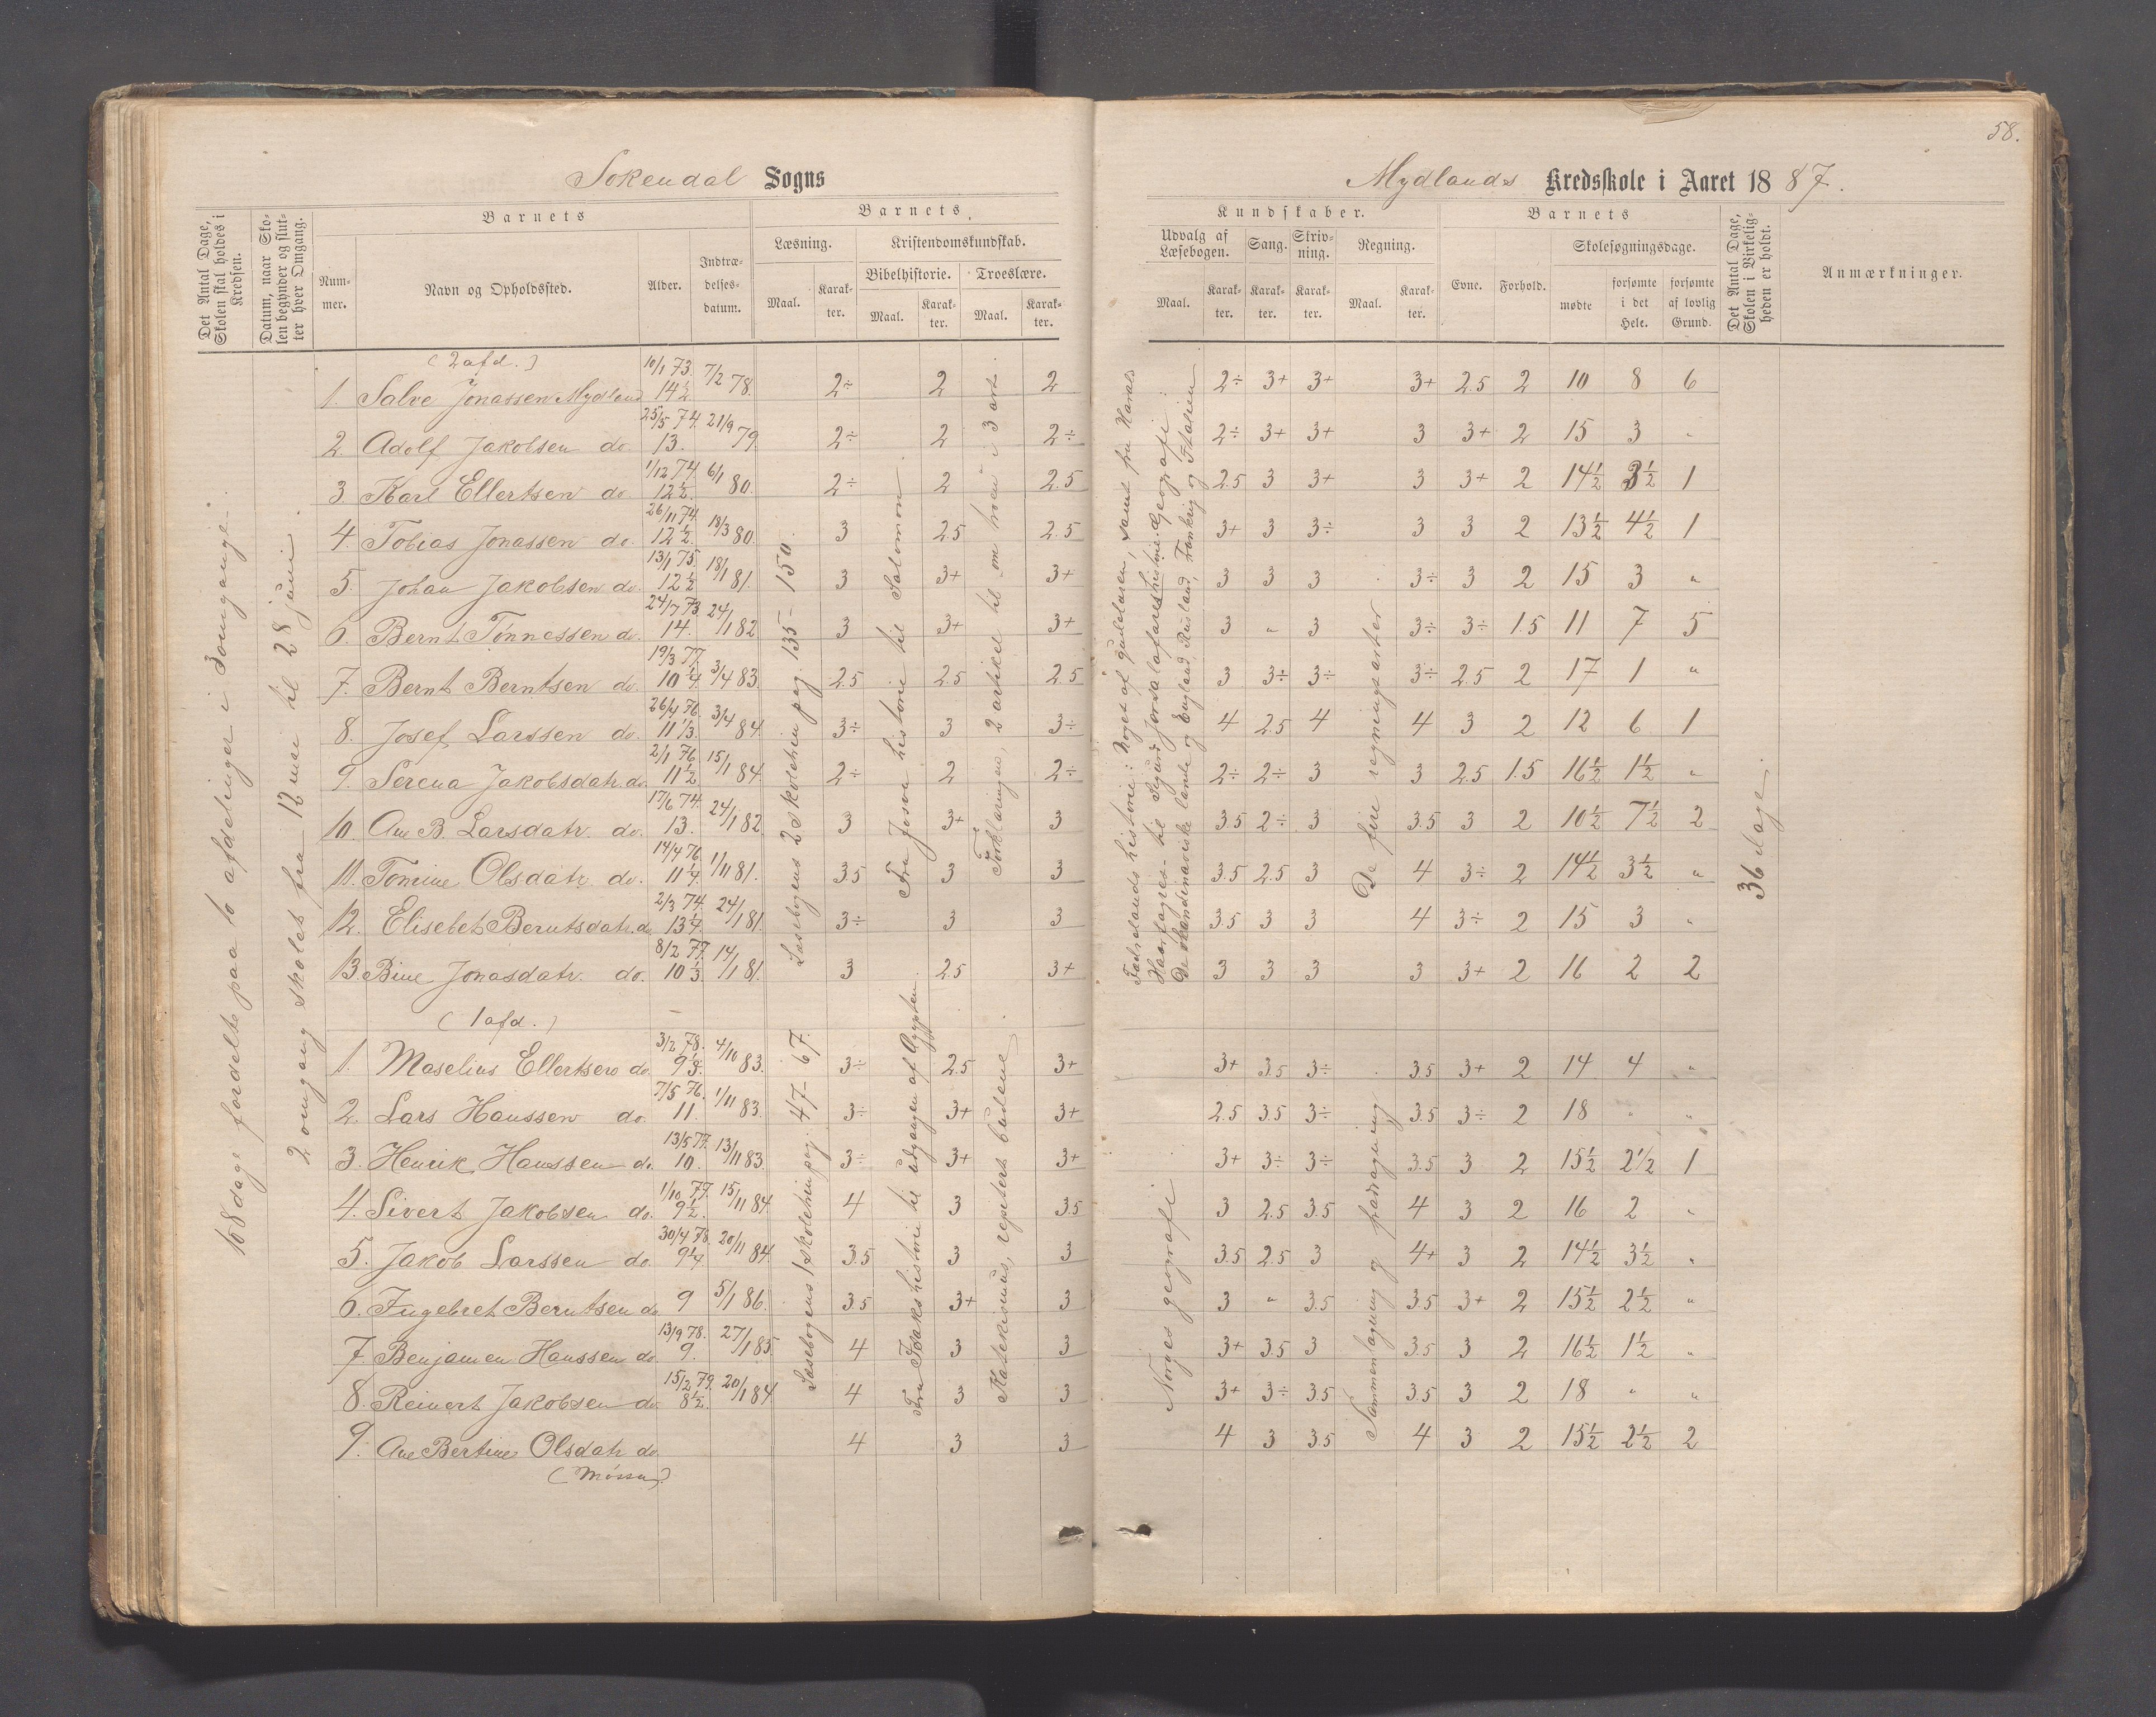 58.
Sokendal Sogns
Mydlands Kredsskole i Aaret 1887.
Det Antal Dage, Skolen skal holdes i Kredsen.
Datum, naar Skolen begynder og slutter hver Omgang.
Barnets
Nummer.
Navn og Opholdssted.
Alder.
Indtrædelsesdatum.
Barnets
Læsning.
Kristendomskundskab.
Bibelhistorie.
Troeslære.
Maal. Karakter. Maal. Karakter. Maal. Karakter.
Kundskaber.
Udvalg af Læsebogen.
Sang.
Skrivning.
Regning.
Maal. Karakter. Karakter. Karakter. Maal. Karakter.
Barnets
Evne. Forhold.
Skolesøgningsdage.
mødte
forsømte i det Hele.
forsømte af lovlig Grund.
Det Antal Dage, Skolen i Virkeligheden er holdt.
Anmærkninger.
108 dage fordelte paa to afdelinger i 3 omgange.
2 omgang skolet fra 12 mai til 28 juni.
Læsebogens 2 skoletrin pag. 135-150.
Fra Josva historie til Salomon.
Forklaringen, 2 artikel til om troen i 3 art.
Fædrelandshistorie: Noget af guldalderen, samt fra Harald
Haarfagres til Sigurd Jorsalafares historie. Geografi:
De skandinaviske lande og England, Rusland, Frankrig og Italien
De fire regningsarter
36 dage.
(2 afd.)
1. Salve Jonassen Mydland 10/1 73. 14½ 7/2 78. 2÷ 2 2 2÷ 3+ 3+ 3+ 2.5 2 10 8 6
2. Adolf Jakobsen do. 25/5 74. 13. 21/9 79. 2÷ 2 2÷ 2÷ 3+ 3+ 3 3+ 2 15 3 "
3. Karl Ellertsen do. 1/12 74 12½. 6/1 80. 2÷ 2 2.5 2.5 3 3+ 3 3+ 2 14½ 3½ 1
4. Tobias Jonassen do. 26/11 74. 12½. 18/3 80. 3 2.5 2.5 3+ 3 3÷ 3 3 2 13½ 4½ 1
5. Johan Jakobsen do. 13/1 75. 12½ 18/1 81. 3 3+ 3+ 3 3 3 3÷ 3 2 15 3 "
6. Bernt Tønnessen do. 24/7 73 14. 24/1 82 3 3+ 3+ 3 " 3 3÷ 3÷ 1.5 11 7 5
7. Bernt Berntsen do. 19/3 77. 10¼. 3/4 83. 2.5 2.5 2.5 3 3÷ 3÷ 3÷ 2.5 2 17 1 "
8. Josef Larssen do. 26/4 76. 11⅓. 3/4 84. 3÷ 3 3÷ 4 2.5 4 4 3 2 12 6 1
9. Serena Jakobsdatr. do. 2/1 76 11½ 15/1 84. 2÷ 2 2÷ 2÷ 2÷ 3 3 2.5 1.5 16½ 1½ "
10. Ane B. Larsdatr. do. 17/6 74. 13. 24/1 82. 3 3+ 3 3.5 2÷ 3 3.5 3 2 10½ 7½ 2
11. Tomine Olsdatr. do. 14/4 76. 11¼. 1/11 81. 3.5 3 3 3.5 2.5 3 4 3÷ 2 14½ 3½ "
12. Elisebet Berntsdatr. do. 2/3 74. 13¼. 24/1 81. 3÷ 3 3 3.5 3 3 4 3÷ 2 15 3 "
13. Bine Jonasdatr. do. 8/2 77. 10⅓. 14/1 81. 3 2.5 3+ 3 3 3 3 3+ 2 16 2 2
(1 afd.)
Læsebogens 1 skoletrin pag. 47-67.
Fra Isaks historie til udgangen af Ægypten
Katekismus, repetert budene.
Norges geografi.
Sammenlægning og fradragning
1. Maselius Ellertsen do. 3/2 78. 9⅓. 4/10 83. 3÷ 2.5 3+ 3+ 3.5 3÷ 3.5 3+ 2 14 4 "
2. Lars Hanssen do. 7/5 76. 11. 1/11 83. 3÷ 3+ 3+ 2.5 3.5 3÷ 3.5 3÷ 2 18 " "
3. Henrik Hanssen do. 13/5 77. 10. 13/11 83. 3÷ 3+ 3+ 3+ 3÷ 3÷ 3.5 3 2 15½ 2½ 1
4. Sivert Jakobsen do. 1/10 77. 9½. 15/11 84. 4 3 3.5 3 2.5 3.5 4 3 2 16 2 "
5. Jakob Larssen do. 30/4 78. 9¼ 20/11 84. 3.5 3 3 3.5 2.5 3 4+ 3 2 14½ 3½ "
6. Ingebret Berntsen do. 9 5/1 86. 3.5 3+ 3 3 " 3.5 3.5 3+ 2 15½ 2½ "
7. Benjamen Hanssen do. 13/9 78. 9. 27/1 85 4 3 3 3+ 3.5 3 3.5 3 2 16½ 1½ "
8. Reinert Jakobsen do. 15/2 79. 8½. 20/1 84. 4 3 3 3+ 3÷ 3.5 3.5 3 2 18 " "
9. Ane Bertine Olsdatr do. 4 3 3 4 3 3.5 4 3 2 15½ 2½ 2